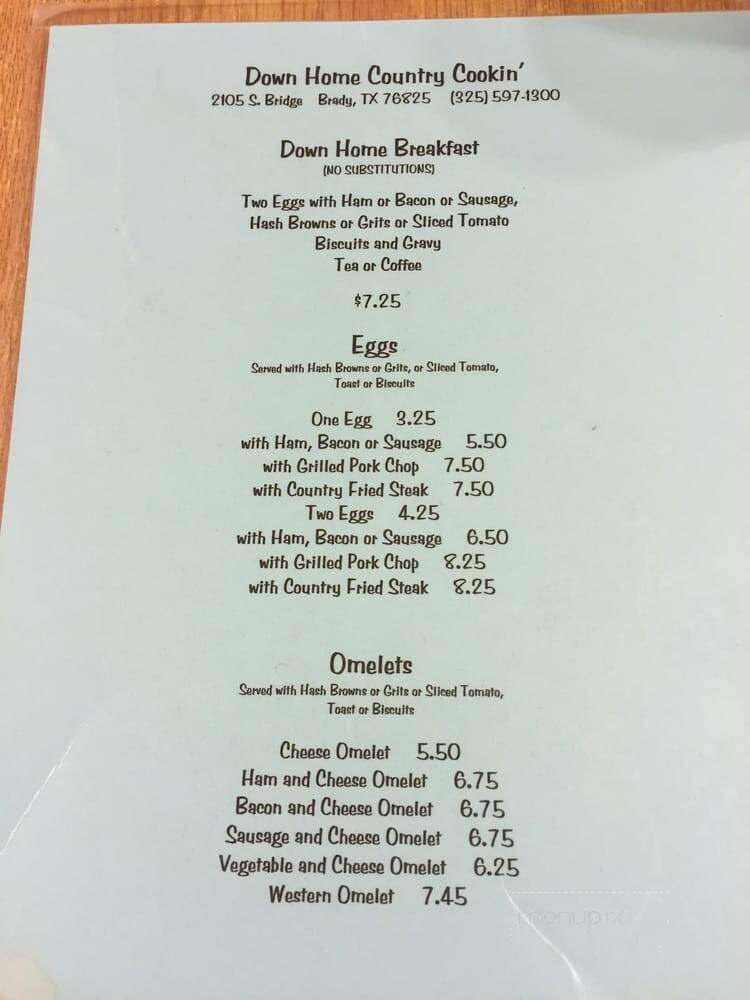 Down Home Country Cookin'
2105 S. Bridge Brady, TX 76825 (325) 597-1300
Down Home Breakfast
(NO SUBSTITUTIONS)
Two Eggs with Ham or Bacon or Sausage,
Hash Browns or Grits or Sliced Tomato
Biscuits and Gravy
Tea or Coffee
$7.25
Eggs
Served with Hash Browns or Grits, or Sliced Tomato,
Toast or Biscuits
One Egg 3.25
with Ham, Bacon or Sausage 5.50
with Grilled Pork Chop 7.50
with Country Fried Steak 7.50
Two Eggs 4.25
with Ham, Bacon or Sausage 6.50
with Grilled Pork Chop 8.25
with Country Fried Steak 8.25
Omelets
Served with Hash Browns or Grits or Sliced Tomato,
Toast or Biscuits
Cheese Omelet 5.50
Ham and Cheese Omelet 6.75
Bacon and Cheese Omelet 6.75
Sausage and Cheese Omelet 6.75
Vegetable and Cheese Omelet 6.25
Western Omelet 7.45
menupix